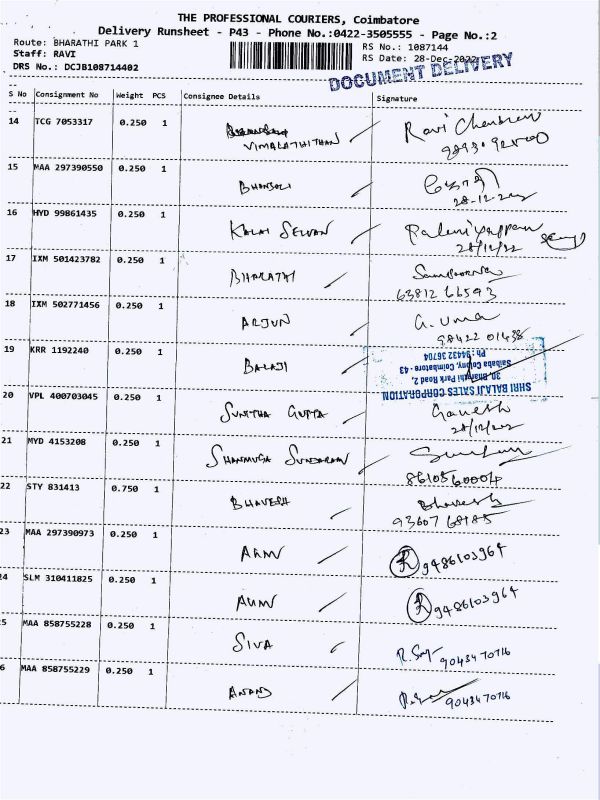 THE PROFESSIONAL COURIERS, Coimbatore
Delivery Runsheet - P43 - Phone No.:0422-3505555 - Page No.:2
Route: BHARATHI PARK 1
RS No.: 1087144
Staff: RAVI
RS Date: 28-Dec-2022
DRS No.: DCJB108714402
DOCUMENT DELIVERY
S No Consignment No Weight PCS Consignee Details Signature
14 TCG 7053317 0.250 1 VIMALATHITHAN Ravi
15 MAA 297390550 0.250 1 BHANSALI
28-12-22
16 HYD 99861435 0.250 1 KALAI SELVAN
28/12/22
17 IXM 501423782 0.250 1 BHARATHI
63812 66593
18 IXM 502771456 0.250 1 ARJUN G. Uma
98422 01438
19 KRR 1192240 0.250 1 BALAJI
SHRI BALAJI SALES CORPORATION
30, Bharathi Park Road 2,
Saibaba Colony, Coimbatore - 43
Ph : 94432 36704
20 VPL 400703045 0.250 1 SUNITHA GUPTA Ganesh
21 MYD 4153208 0.250 1 SHANMUGA SUNDARAM
8610560004
22 STY 831413 0.750 1 BHAVESH Bhavesh
93607 68185
23 MAA 297390973 0.250 1 ARN
R 9486103964
24 SLM 310411825 0.250 1
R 9486103964
5 MAA 858755228 0.250 1 SIVA
9043470716
6 MAA 858755229 0.250 1 ANAND
9043470716